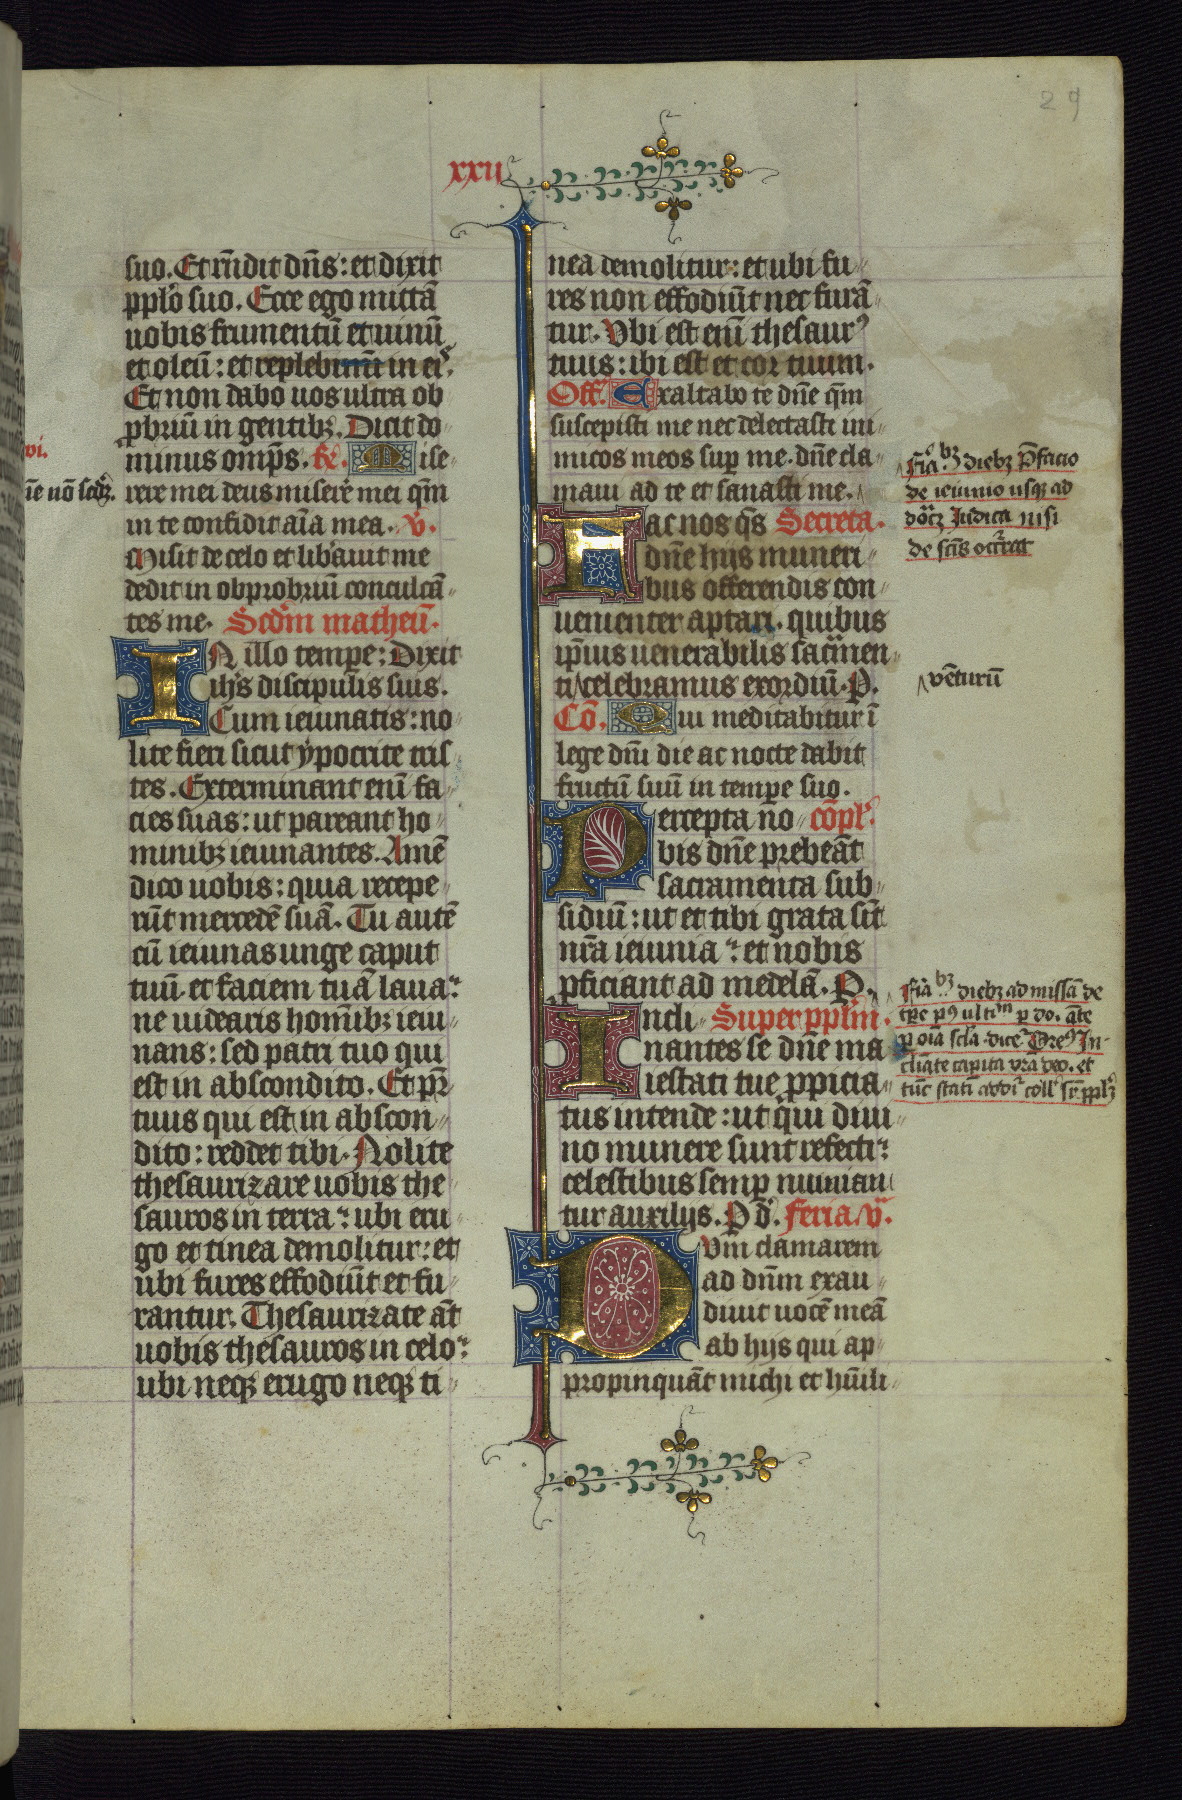 29
xxii
suo. Et rñdit dñs: et dixit
pplo suo. Ecce ego mittã
uobis frumentũ et uinũ
et oleũ: et replebimĩ in eis.
Et non dabo uos ultra ob
pbriũ in gentibꝫ. Dicit do
minus omp̃s. Mise
rere mei deus miserẽ mei qm̃
in te confidit aĩa mea. v̾.
Misit de celo et libauit me
dedit in obprobriũ conculcã
tes me. Scdm matheũ.
IN illo tempe: Dixit
ihs discipulis suis.
Cum ieiunatis: no
lite fieri sicut ypocrite tris
tes. Exterminant enĩ fa
cies suas: ut pareant ho
minibꝫ ieiunantes. Amẽ
dico uobis: quia recepe
rũt mercedẽ suã. Tu autẽ
cũ ieiunas unge caput
tuũ et faciem tuã laua:
ne uidearis hoñibꝫ ieiu
nans: sed patri tuo qui
est in abscondito. Et pr̃
tuus qui est in abscon
dito: reddet tibi. Nolite
thesaurizare uobis the
sauros in terra: ubi eru
go et tinea demolitur: et
ubi fures effodiũt et fu
rantur. Thesaurizate aũt
uobis thesauros in celo:
ubi neqꝫ erugo neqꝫ ti
nea demolitur: et ubi fu
res non effodiũt nec furã
tur. Vbi est enĩ thesaur⁹
tuus: ibi est et cor tuum.
Off. Exaltabo te dñe qm̃
suscepisti me nec delectasti ini
micos meos sup me. dñe cla
maui ad te et sanasti me.
Fac nos q̃s Secreta.
dñe hijs muneri
bus offerendis con
uenienter aptari. quibus
ip̃ius uenerabilis sacm̃en
ti celebramus exordiũ. P.
Cõ. Qui meditabitur ĩ
lege dñi die ac nocte dabit
fructũ suũ in tempe suo.
Percepta no cõpl.
bis dñe prebeãt
sacramenta sub
sidiũ: ut et tibi grata sĩt
nr̃a ieiunia: et nobis
pficiant ad medelã. P.
Incli Super pplm̃.
nantes se dñe ma
iestati tue ppicia
tus intende: ut qui diui
no munere sunt refecti:
celestibus semp munian
tur auxilijs. P d. feria. v̾.
Dvm clamarem
ad dñm exau
diuit uocẽ meã
ab hijs qui ap
propinquãt michi et hũili
vi.
fia bꝫ diebꝫ p̃facio
de ieiunio usqꝫ ad
Iudica nisi
de scis occ̃rat
vẽturũ
fia bꝫ diebꝫ ad missã de
p oĩa scla dicẽ
cliate capita vr̃a deo. et